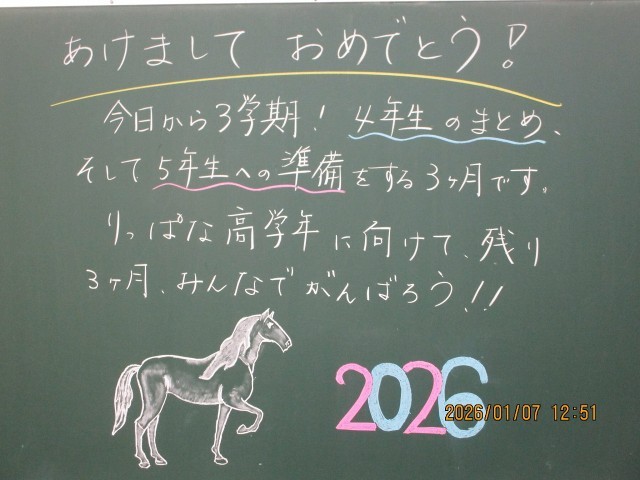 あけまして おめでとう!
今日から3学期! 4年生のまとめ、
そして5年生への準備をする3ヶ月です。
りっぱな高学年に向けて、残り
3ヶ月、みんなでがんばろう!!
2026
2026/01/07 12:51